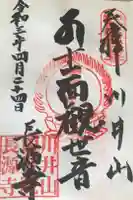 川井山
十一面観世音
令和三年四月二十四日
長源寺
井山
長源寺